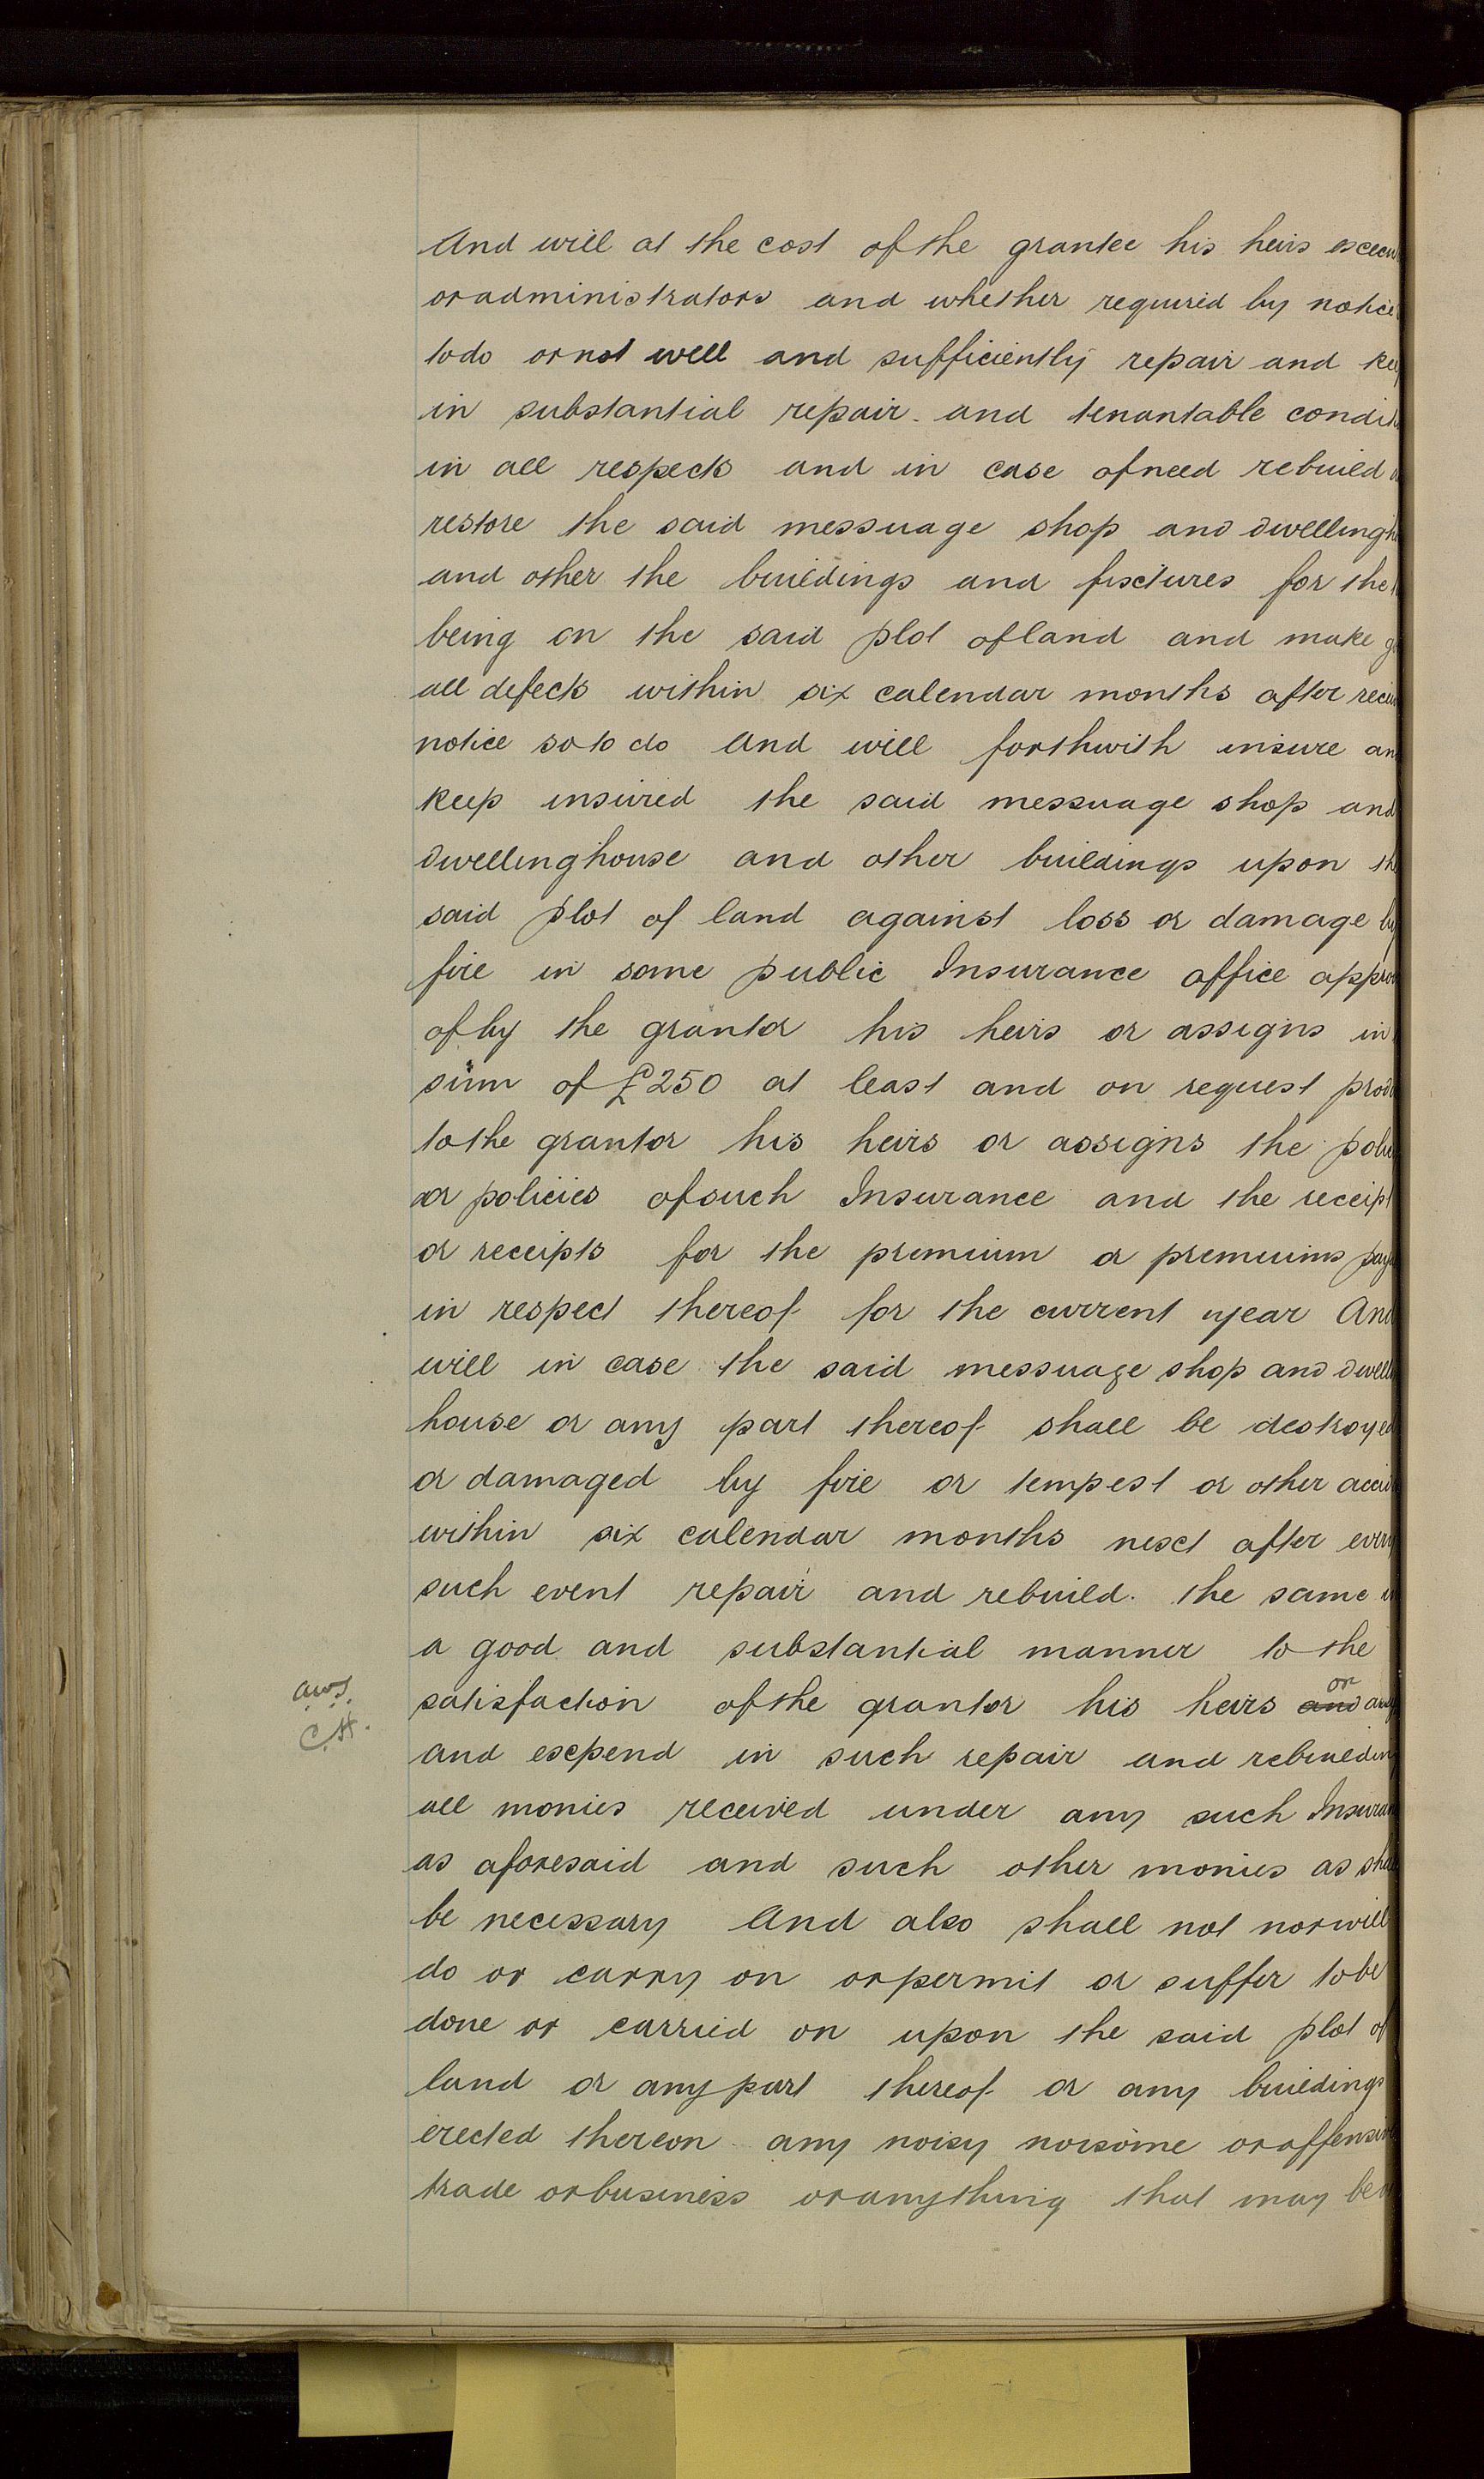 And will at the cost of the grantee his heirs execu
or administrators and whether required by notice
to do or not well and sufficiently repair and kee
in substantial repair and tenantable condit
in all respects and in case of need rebuild
restore the said messuage shop and dwellingh
and other the buildings and fixtures for the
being on the said plot of land and make g
all defects within six calendar months after recei
notice so to do And will forthwith insure an
keep insured the said messuage shop and
dwellinghouse and other buildings upon the
said plot of land against loss or damage by
fire in some public Insurance office appro
of by the grantor his heirs or assigns in
sum of £250 at least and on request prod
to the grantor his heirs or assigns the poli
or policies of such Insurance and the receipt
or receipts for the premium or premiums pay
in respect thereof for the current year And
will in case the said messuage shop and dwell
house or any part thereof shall be destroyed
or damaged by fire or tempest or other accid
within six calendar months next after every
such event repair and rebuild the same in
a good and substantial manner to the
aws. satisfaction of the grantor his heirs and or assig
C.H. and expend in such repair and rebuilding
all monies received under any such Insuran
as aforesaid and such other monies as shall
be necessary And also shall not nor will
do or carry on or permit or suffer to be
done or carried on upon the said plot of
land or any part thereof or any buildings
erected thereon any noisy noisome or offensive
trade or business or anything that may be